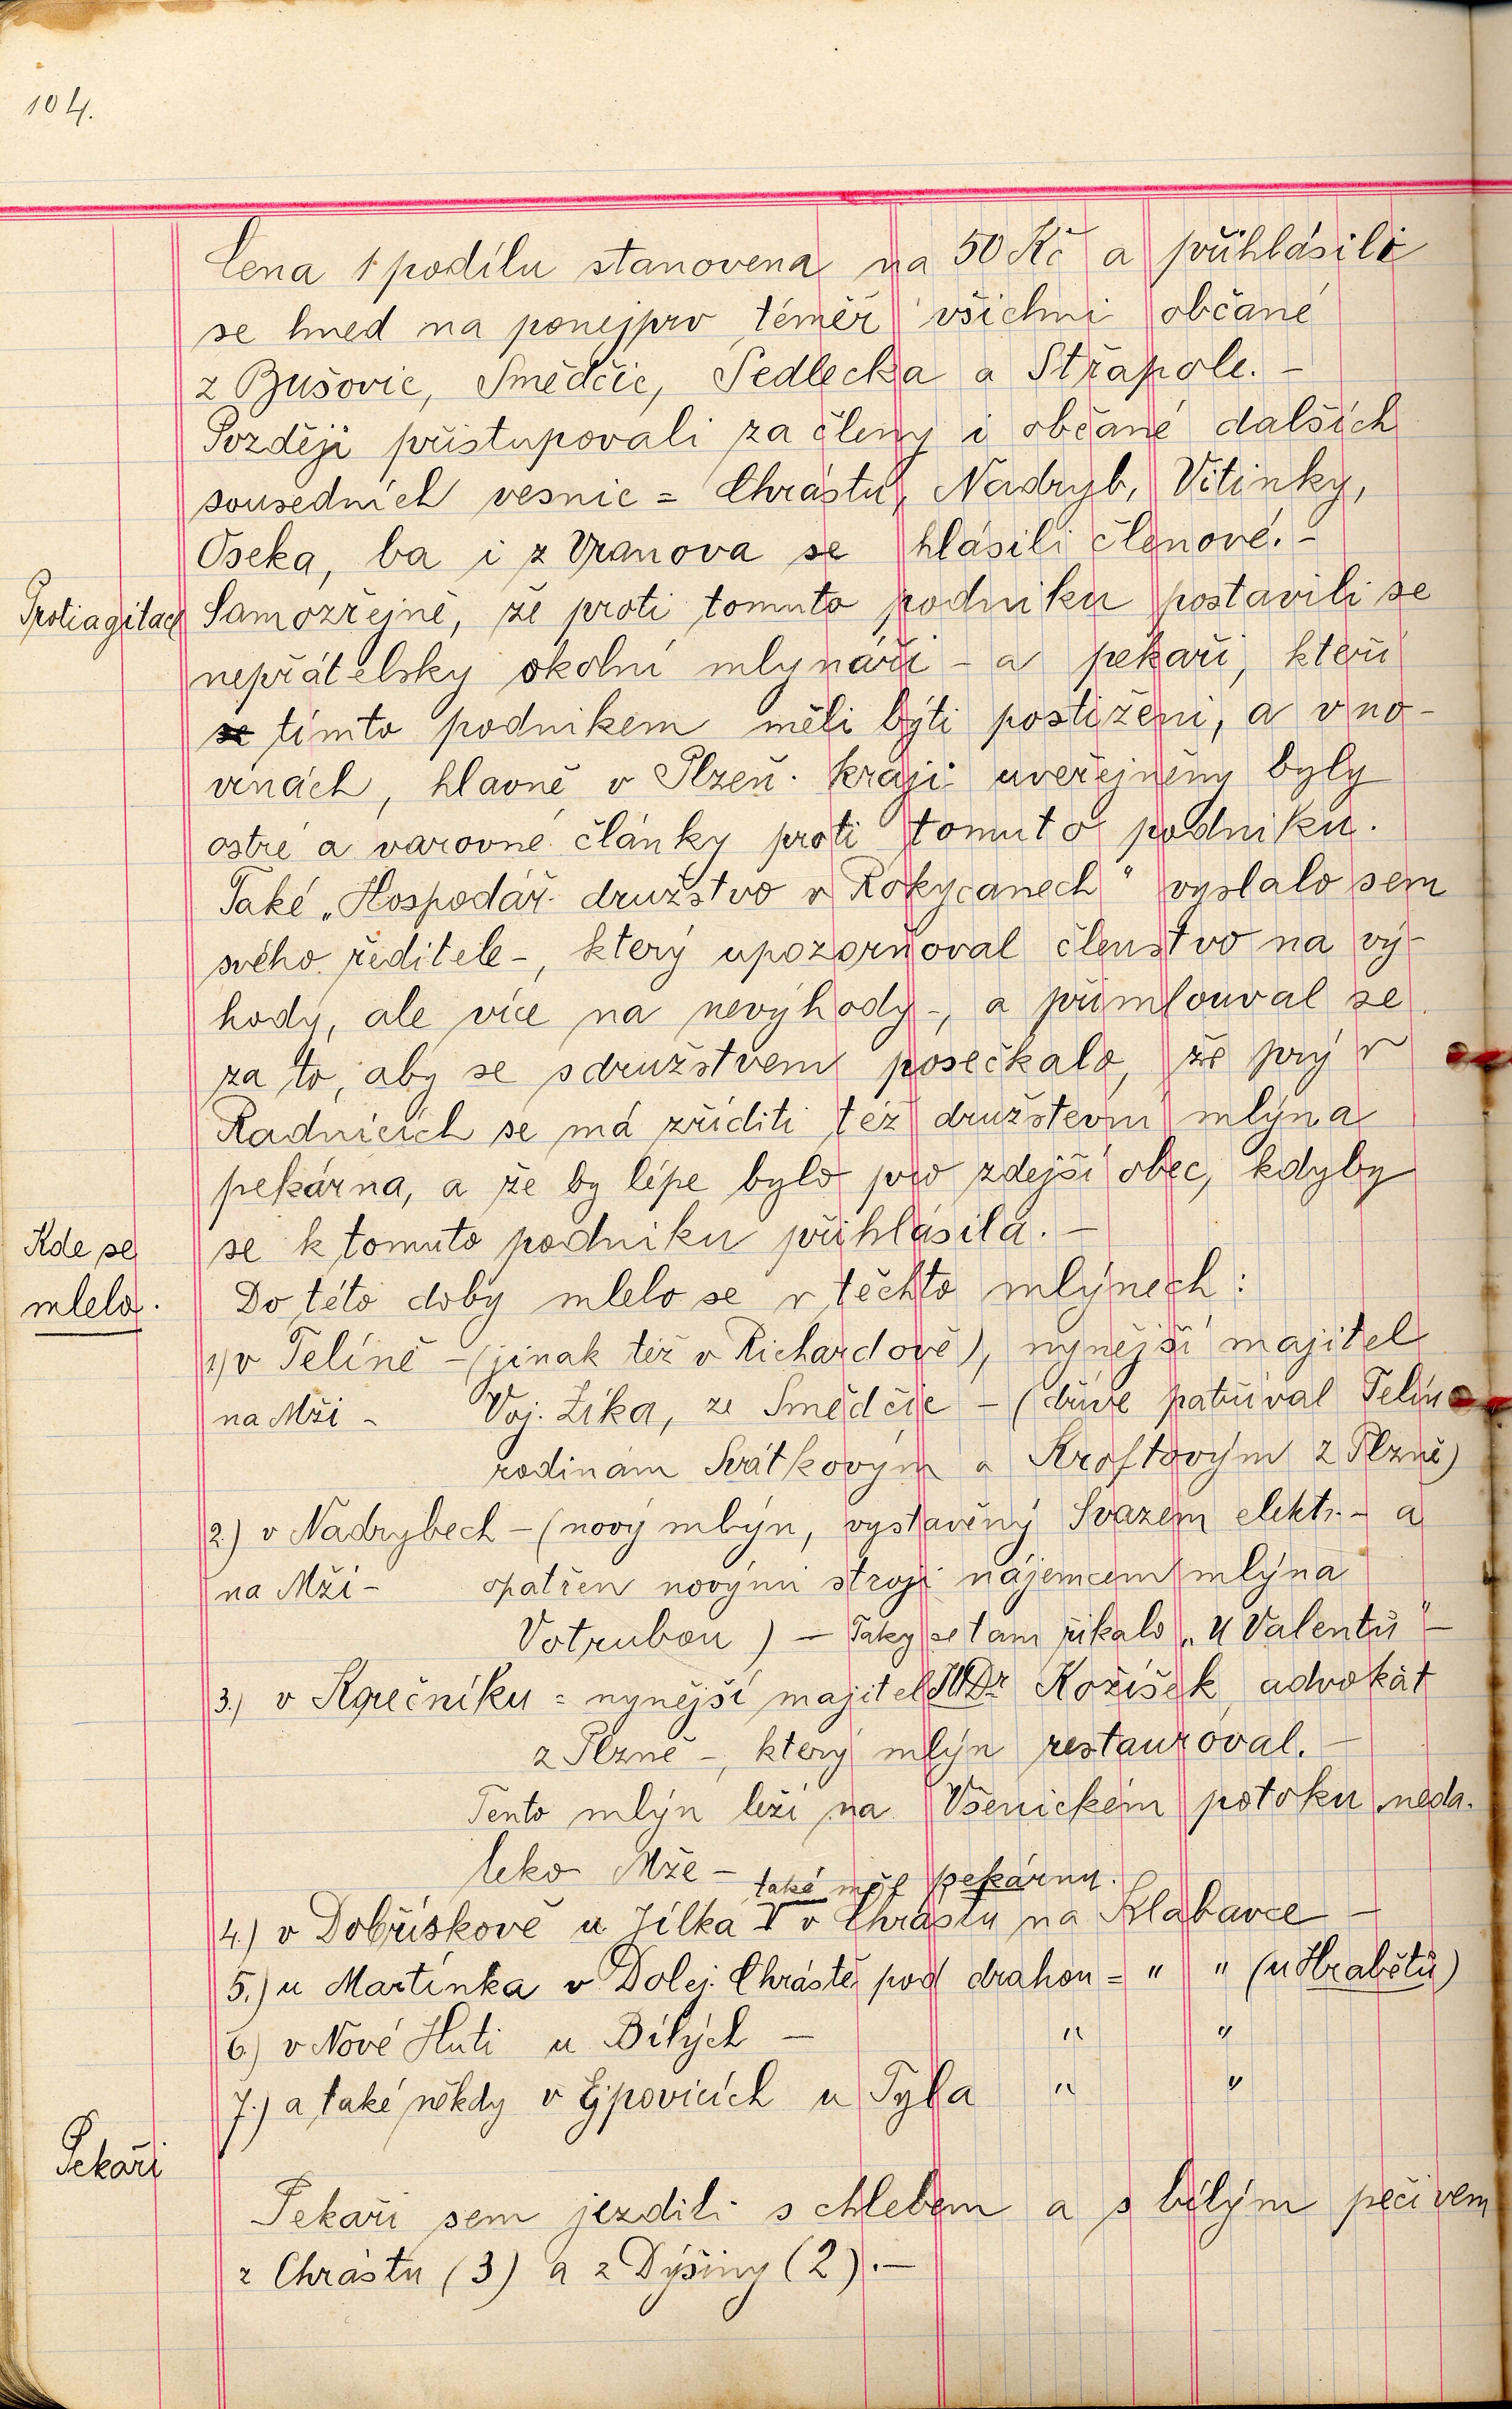 104.
Cena 1 podílu stanovena na 50 Kč a přihlásili
se hned na ponejprv téměř všichni občané
z Bušovic, Smědčic, Sedlecka a Střapole. -
Později přistupovali za členy i občané dalších
sousedních vesnic = Chrástu, Nadryb, Vitinky,
Oseka, ba i z Vranova se hlásili členové. -
Protiagitace Samozřejmě, že proti tomuto podniku postavili se
nepřátelsky okolní mlynáři - a pekaři, kteří
se tímto podnikem měli býti postiženi, a v no-
vinách, hlavně v Plzeň. kraji uveřejněny byly
ostré a varovné články proti tomuto podniku.
Také „Hospodář. družstvo v Rokycanech" vyslalo sem
svého ředitele -, který upozorňoval členstvo na vý-
hody, ale více na nevýhody -, a přimlouval se
za to, aby se s družstvem posečkalo, že prý v
Radnicích se má zříditi též družstevní mlýn a
pekárna, a že by lépe bylo pro zdejší obec, kdyby
se k tomuto podniku přihlásila. -
Kde se
mlelo.
Do této doby mlelo se v těchto mlýnech:
1) v Telíně - (jinak též v Richardově), nynější majitel
na Mži - Voj. Žika, ze Smědčic - (dříve patříval Telín
rodinám Svátkovým a Kroftovým z Plzně)
2.) v Nadrybech - (nový mlýn, vystavěný Svazem elektr. - a
na Mži - opatřen novými stroji nájemcem mlýna
Votrubou) - Taky se tam říkalo „U Valentů" -
3.) v Kořečníku = nynější majitel JUDr Kožíšek advokát
z Plzně -, který mlýn restauroval. -
Tento mlýn leží na Všenickém potoku neda-
leko Mže -
také měl pekárnu.
4.) v Dobřískově u Jílka v Chrástu na Klabavce -
5.) u Martínka v Dolej. Chrástě pod drahou = " " (u Hrabětů)
6.) v Nové Huti u Bílých - " "
7.) a také někdy v Ejpovicích u Tyla " "
Pekaři
Pekaři sem jezdili s chlebem a s bílým pečivem
z Chrástu (3) a z Dýšiny (2). -